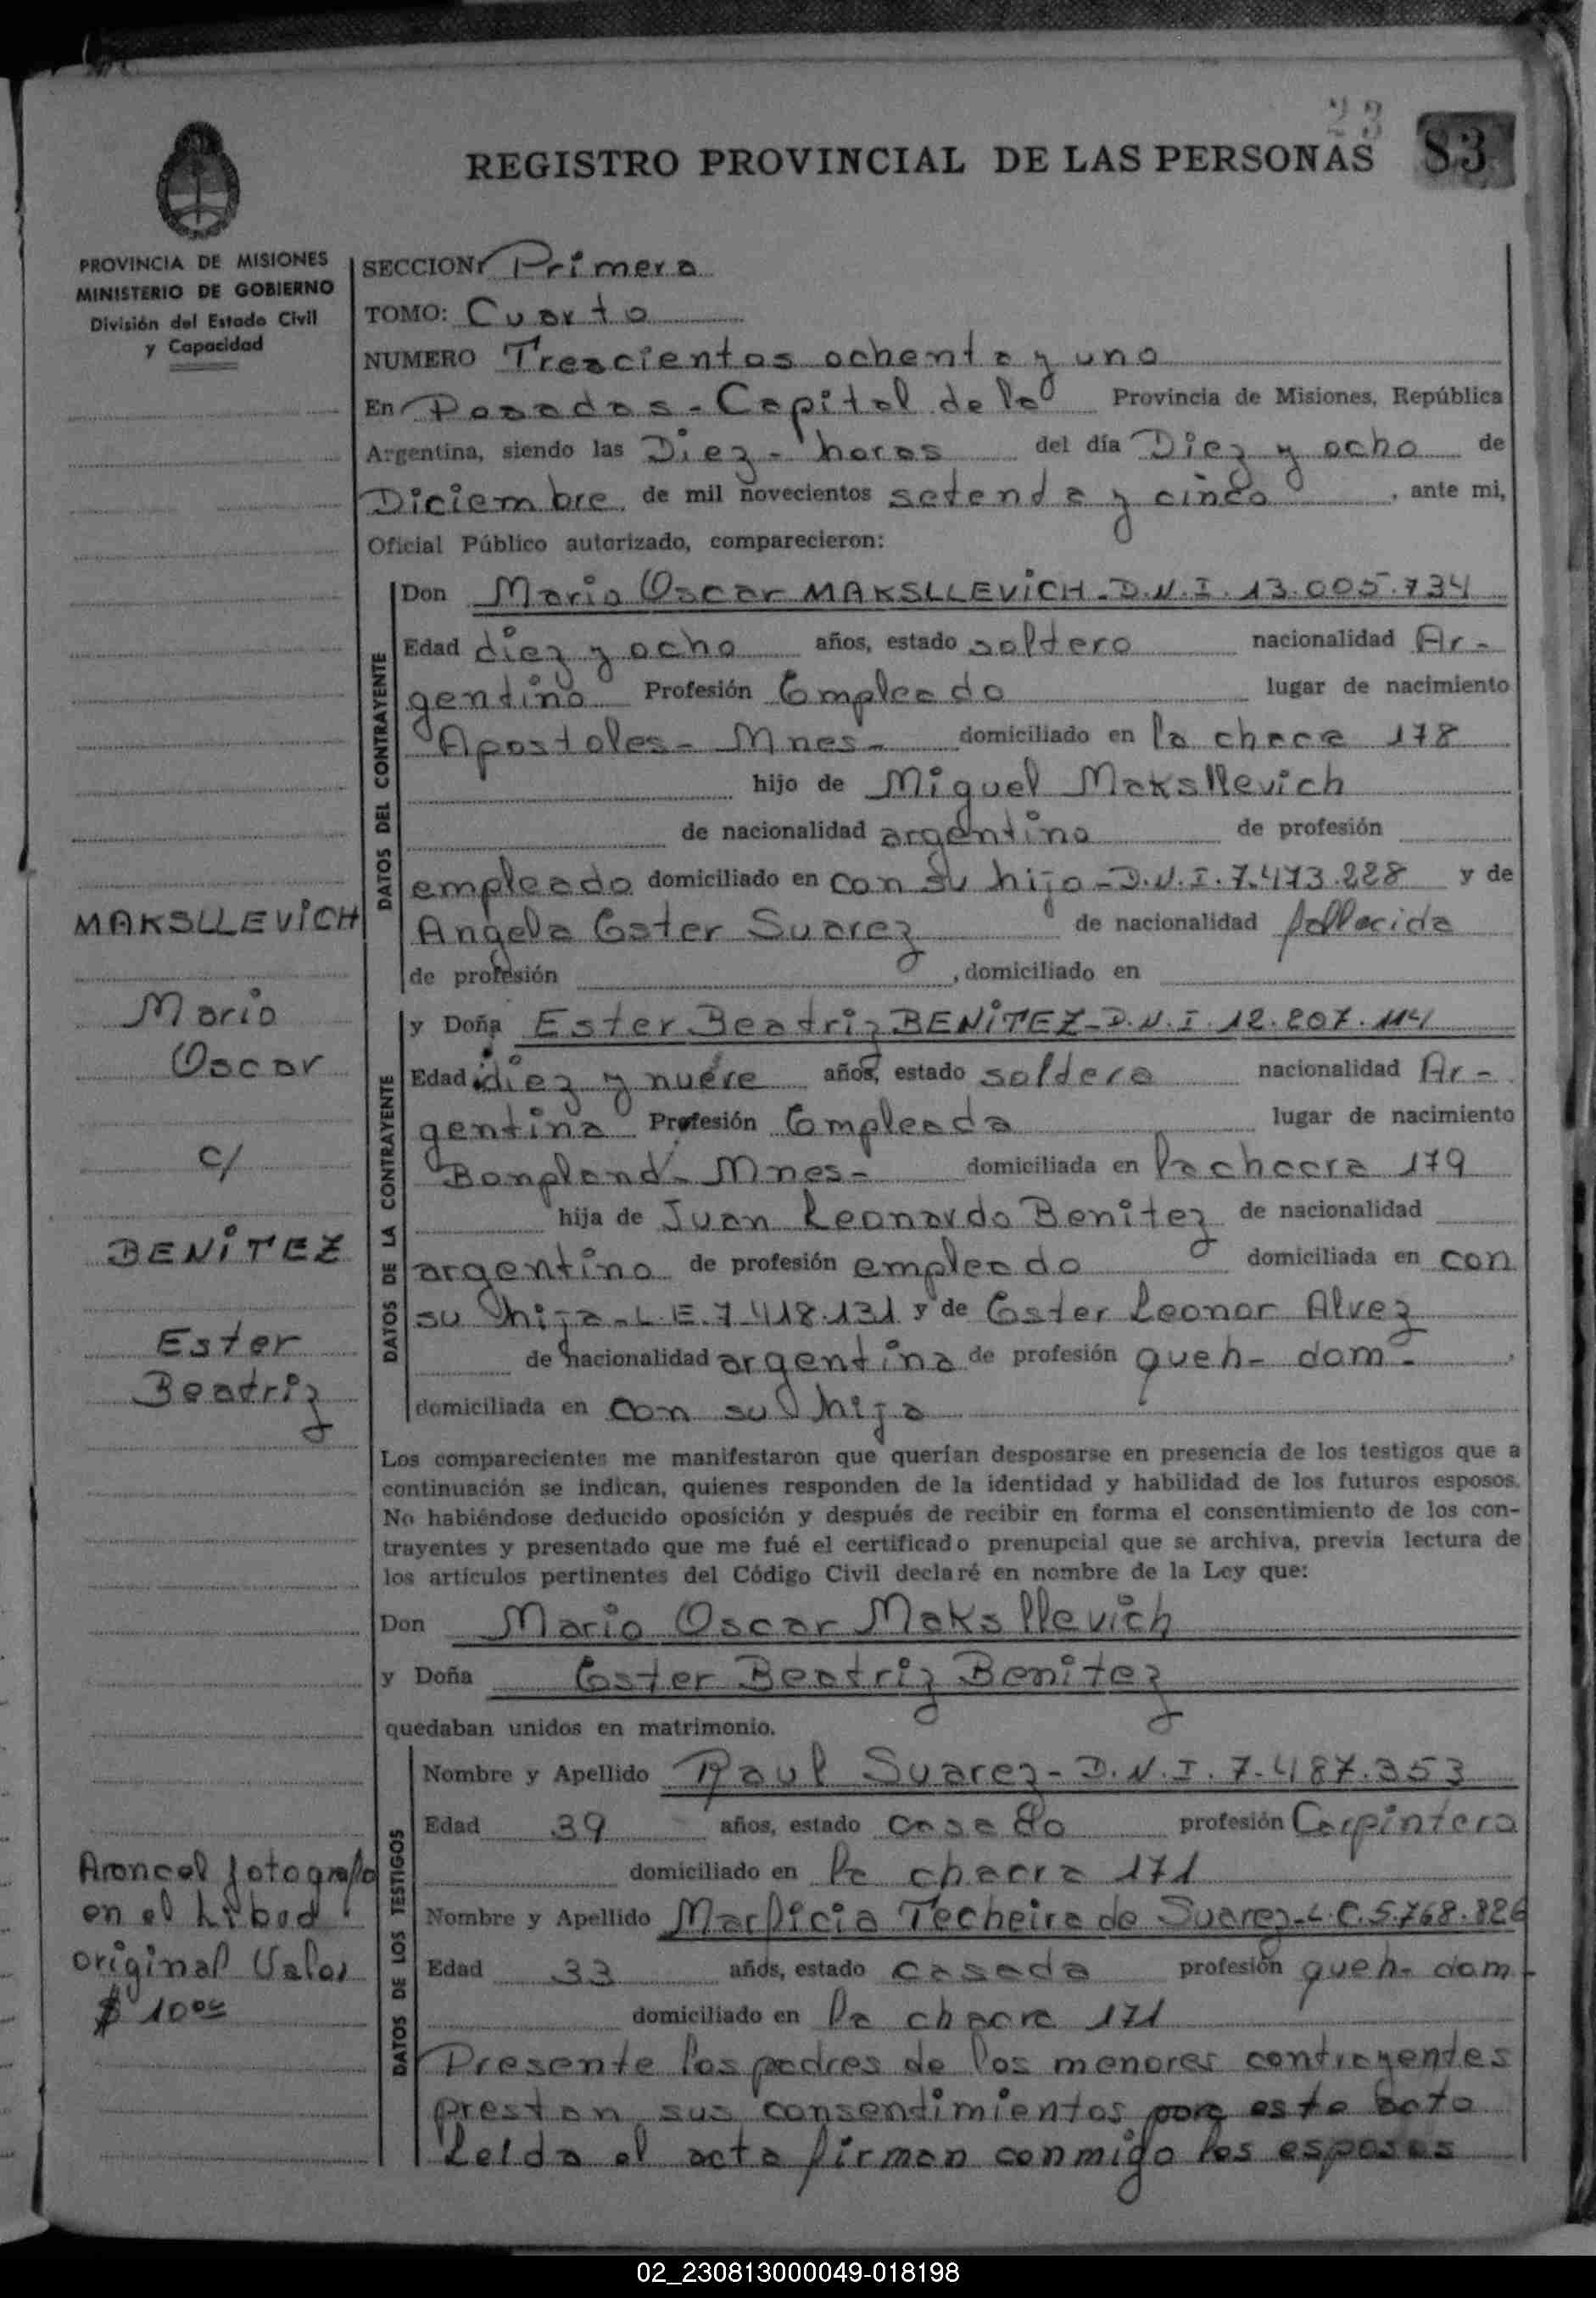 23
REGISTRO PROVINCIAL DE LAS PERSONAS 83
PROVINCIA DE MISIONES
MINISTERIO DE GOBIERNO
División del Estado Civil
y Capacidad
SECCION: Primera
TOMO: Cuarto
NUMERO Trescientos ochenta y uno
En Posadas - Capital de la Provincia de Misiones, República
Argentina, siendo las Diez - horas del día Diez y ocho de
Diciembre de mil novecientos setenta y cinco, ante mi,
Oficial Público autorizado, comparecieron:
DATOS DEL CONTRAYENTE
Don Mario Oscar MAKSLLEVICH - D.N.I. 13.005.734
Edad diez y ocho años, estado soltero nacionalidad Ar-
gentino Profesión Empleado lugar de nacimiento
Apostoles - Mnes - domiciliado en la chacra 178
hijo de Miguel Maksllevich
de nacionalidad argentino de profesión
empleado domiciliado en con su hijo - D.N.I. 7.473.228 y de
Angela Ester Suarez de nacionalidad fallecida
de profesión , domiciliado en
DATOS DE LA CONTRAYENTE
y Doña Ester Beatriz BENITEZ - D.N.I. 12.207.114
Edad diez y nueve años, estado soltera nacionalidad Ar-
gentina Profesión Empleada lugar de nacimiento
Bonpland - Mnes - domiciliada en la chacra 179
hija de Juan Leonardo Benitez de nacionalidad
argentino de profesión empleado domiciliada en con
su hija - L.E. 7.418.131 y de Ester Leonor Alvez
de nacionalidad argentina de profesión queh - dom -
domiciliada en con su hija
Los comparecientes me manifestaron que querían desposarse en presencia de los testigos que a
continuación se indican, quienes responden de la identidad y habilidad de los futuros esposos.
No habiéndose deducido oposición y después de recibir en forma el consentimiento de los con-
trayentes y presentado que me fué el certificado prenupcial que se archiva, previa lectura de
los artículos pertinentes del Código Civil declaré en nombre de la Ley que:
Don Mario Oscar Maksllevich
y Doña Ester Beatriz Benitez
quedaban unidos en matrimonio.
DATOS DE LOS TESTIGOS
Nombre y Apellido Raul Suarez - D.N.I. 7.487.353
Edad 39 años, estado casado profesión Carpintero
domiciliado en la chacra 171
Nombre y Apellido Marlicia Techeira de Suarez - L.C. 5.768.826
Edad 33 años, estado casada profesión queh - dom -
domiciliado en la chacra 171
Presente los padres de los menores contrayentes
prestan sus consentimientos para este acto
Leida el acta firman conmigo los esposos
MAKSLLEVICH
Mario
Oscar
c/
BENITEZ
Ester
Beatriz
Arancel fotografo
en el
original Valor
$ 10oo
02_230813000049-018198